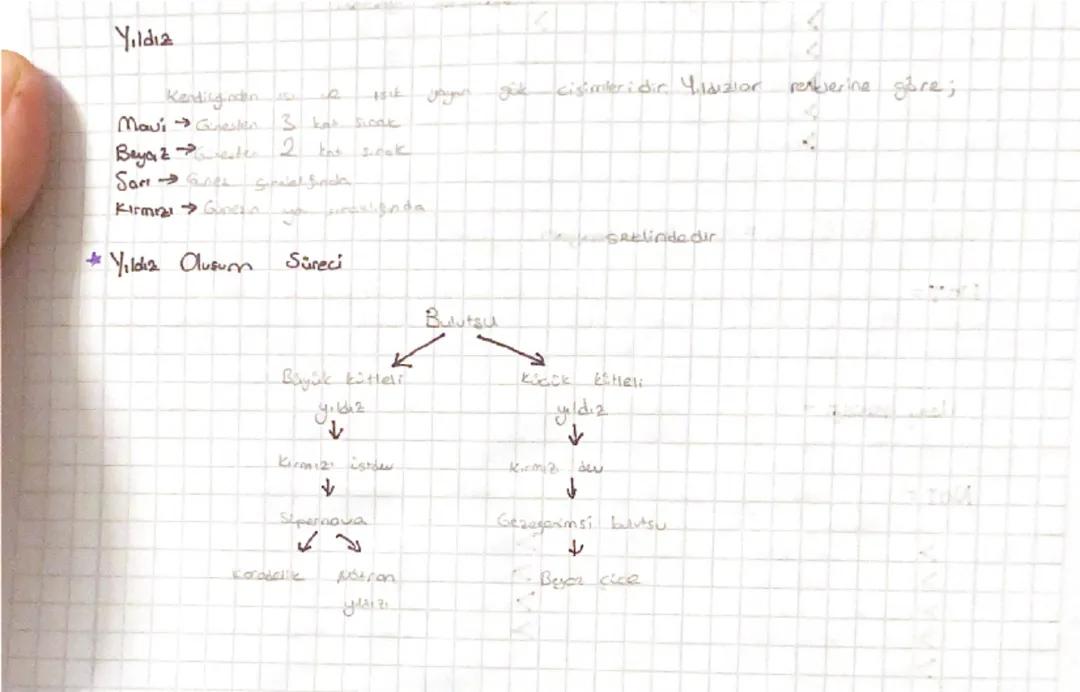 Yıldız
Kendiliğinden ısı ve ışık yayan gök cisimleridir. Yıldızlar renklerine göre;
Mavi → Güneşten 3 kat sıcak
Beyaz → Güneşten 2 kat sıcak
Sarı → Güneş sıcaklığında
Kırmızı → Güneşin sıcaklığında
şeklindedir
* Yıldız Oluşum Süreci
Bulutsu
Büyük kütleli Küçük kütleli
yıldız yıldız
Kırmızı üstdev Kırmızı dev
Süpernova Gezegenimsi bulutsu
Karadelik Nötron Beyaz cüce
yıldızı